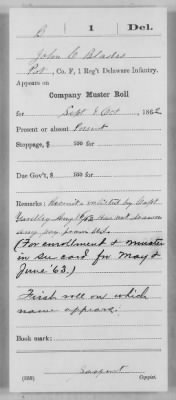 B 1 Del.
John C Blades
Pvt, Co. F, 1 Reg't Delaware Infantry.
Appears on
Company Muster Roll
for Sept & Oct, 1862
Present or absent Present
Stoppage, $ 100 for
Due Gov't, $ 100 for
Remarks: Recruit enlisted by Capt.
Aug
any
(For enrollment & muster
in see card for May &
June '63.)
First roll on which
name appears.
Book mark:
Copyist